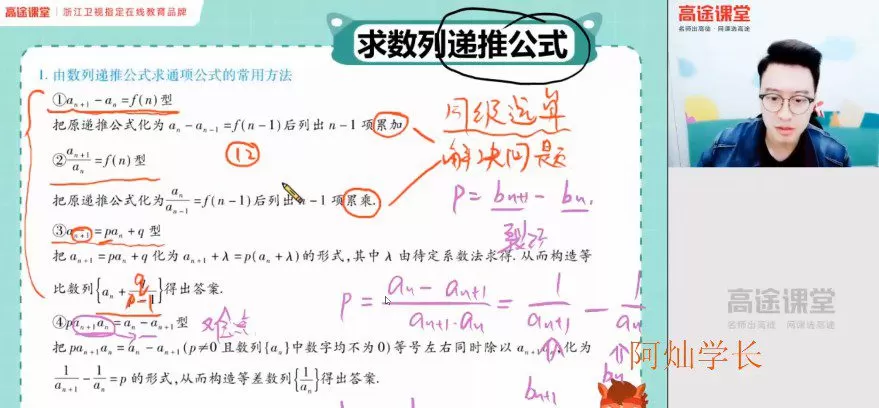 高途课堂 | 浙江卫视指定在线教育品牌
求数列递推公式
1. 由数列递推公式求通项公式的常用方法
①aₙ₊₁－aₙ＝f(n)型
把原递推公式化为 aₙ－aₙ₋₁＝f(n－1)后列出 n－1 项累加
②aₙ₊₁/aₙ＝f(n)型
把原递推公式化为 aₙ/aₙ₋₁＝f(n－1)后列出 n－1 项累乘.
③aₙ₊₁＝paₙ＋q 型
把 aₙ₊₁＝paₙ＋q 化为 aₙ₊₁＋λ＝p(aₙ＋λ)的形式,其中 λ 由待定系数法求得. 从而构造等
比数列{aₙ＋q/p－1}得出答案.
④paₙ₊₁aₙ＝aₙ－aₙ₊₁型
把 paₙ₊₁aₙ＝aₙ－aₙ₊₁(p≠0 且数列{aₙ}中数字均不为 0)等号左右同时除以 aₙ₊₁ 化为
1/aₙ₊₁－1/aₙ＝p 的形式,从而构造等差数列{1/aₙ}得出答案.
同级运算
解决问题
12
P = bₙ₊₁ － bₙ.
P = aₙ－aₙ₊₁/aₙ₊₁·aₙ = 1/aₙ₊₁ － 1/aₙ
bₙ₊₁
bₙ
阿灿学长
高途课堂
名师出高徒 · 网课选高途
高途课堂
名师出高徒 网课选高途